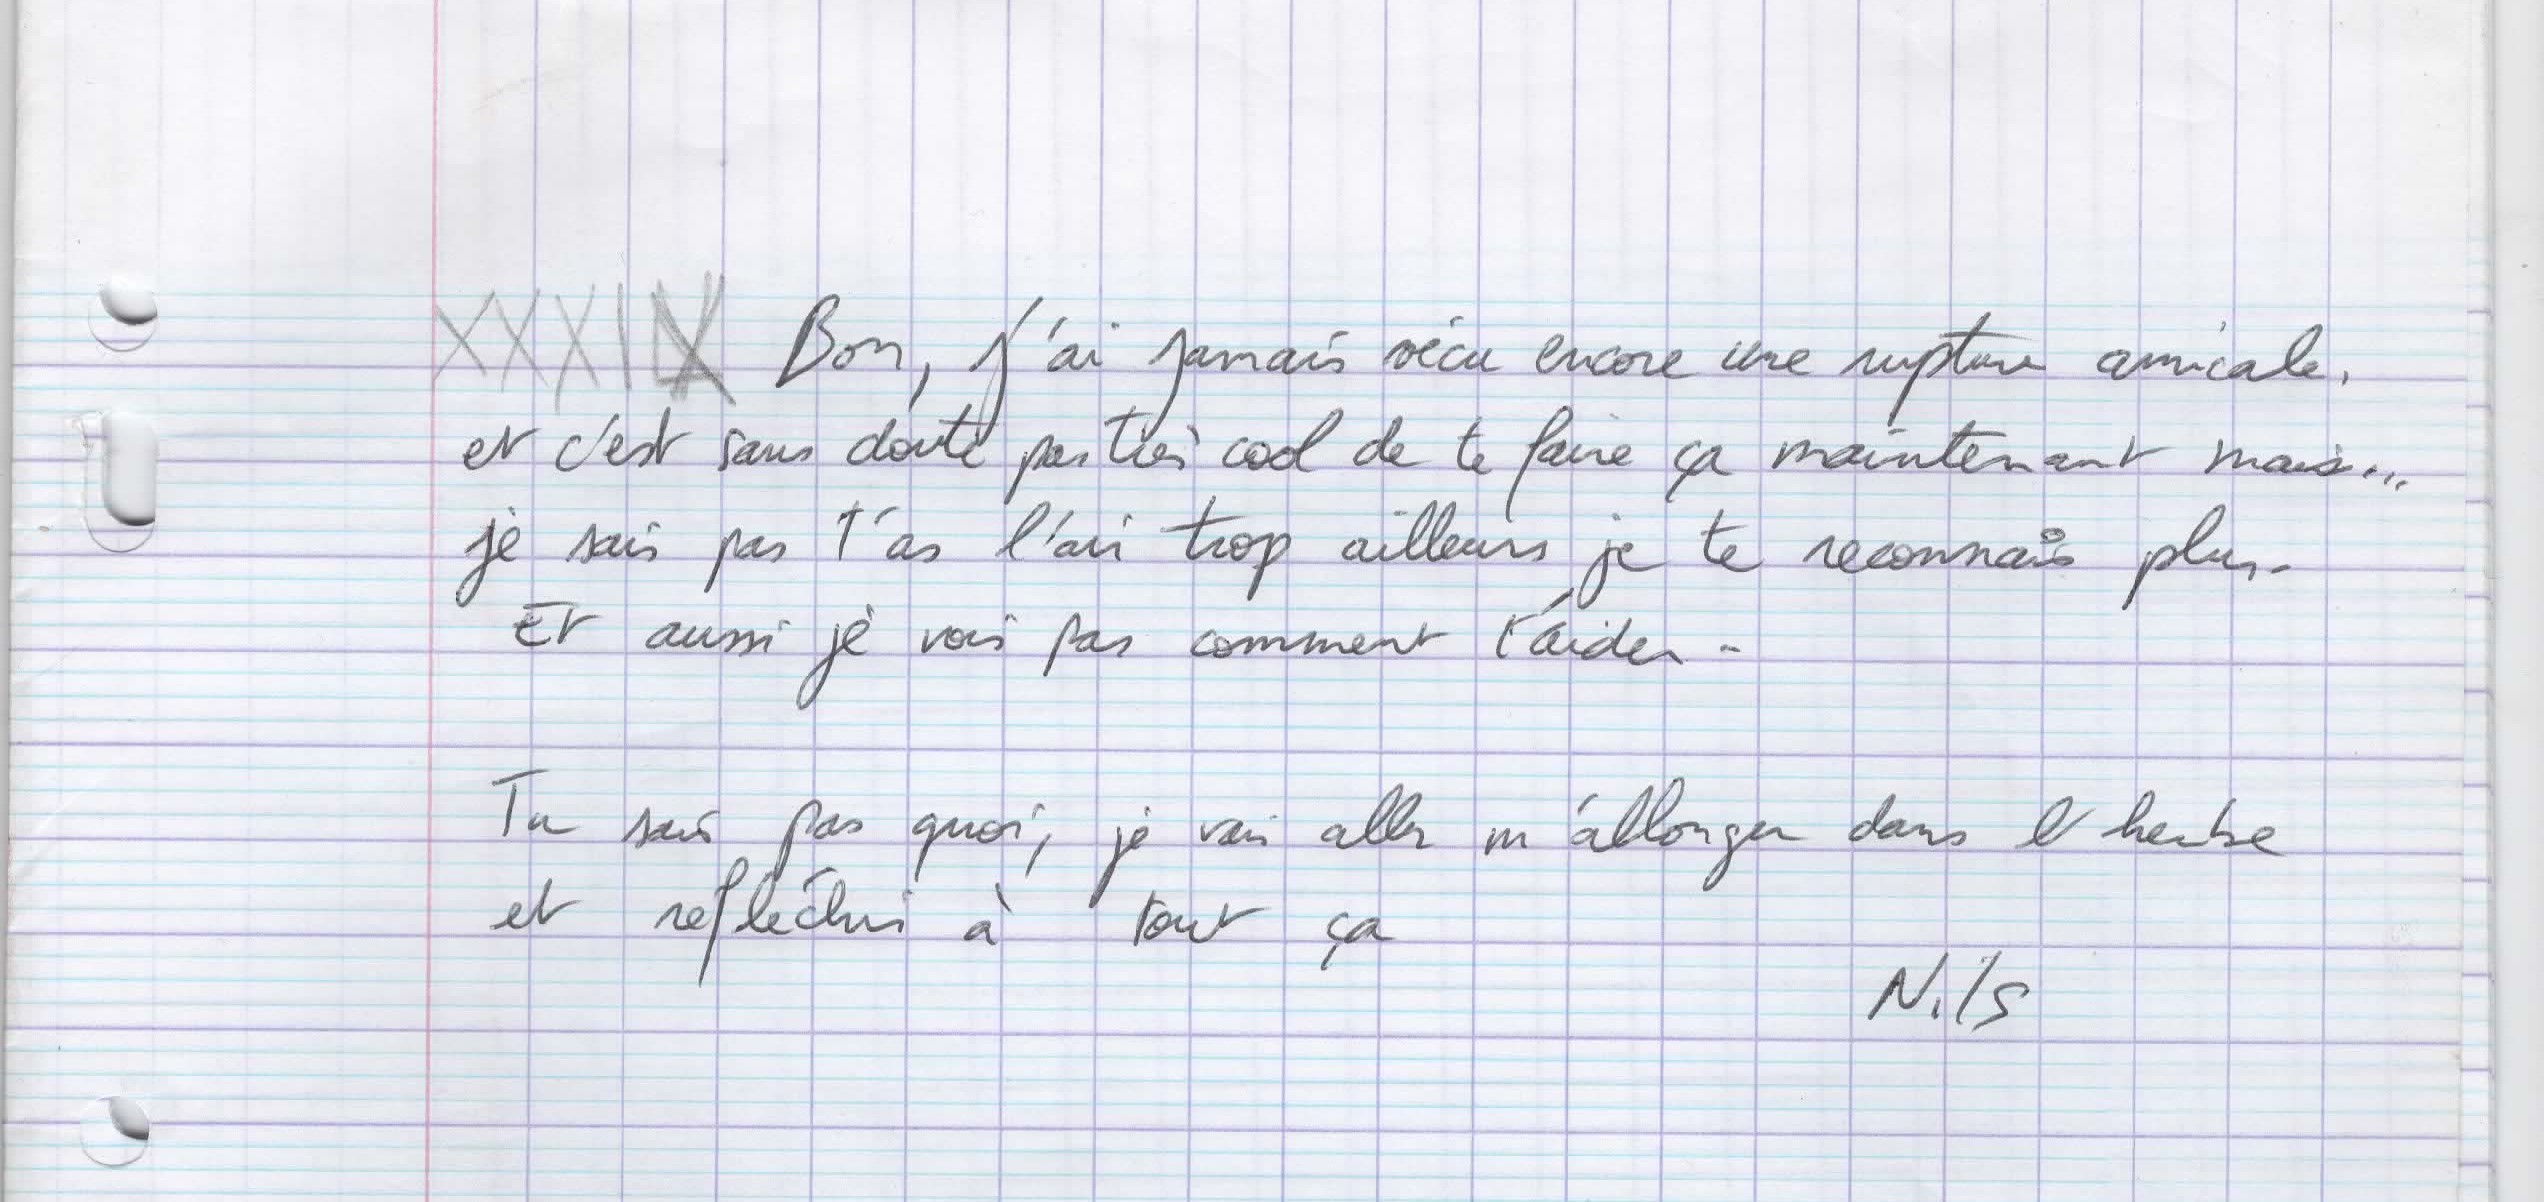 XXXIX Bon, j'ai jamais vécu encore une rupture amicale.
et c'est sans doute pas très cool de te faire ça maintenant mais...
je sais pas t'as l'air trop ailleurs je te reconnais plus.
Et aussi je vois pas comment t'aider.
Tu sais pas quoi, je vais aller m'allonger dans l'herbe
et refléchir à tout ça
Nils